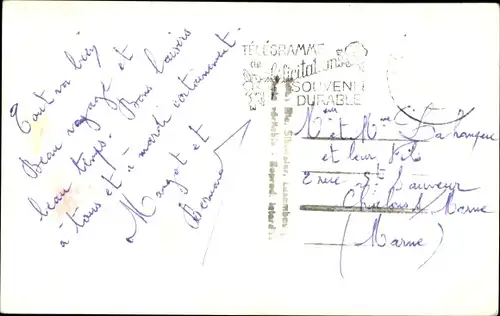 Tout va bien
Beau voyage et
beau temps. Bons baisers
à tous et à mardi certainement.
Margot et
Bernard
TÉLÉGRAMME
de
félicitations
SOUVENIR
DURABLE
véritable - Reprod. interd.
Mr et Mme
et leur Fils
rue St Sauveur
Châlons s/ Marne
(Marne)